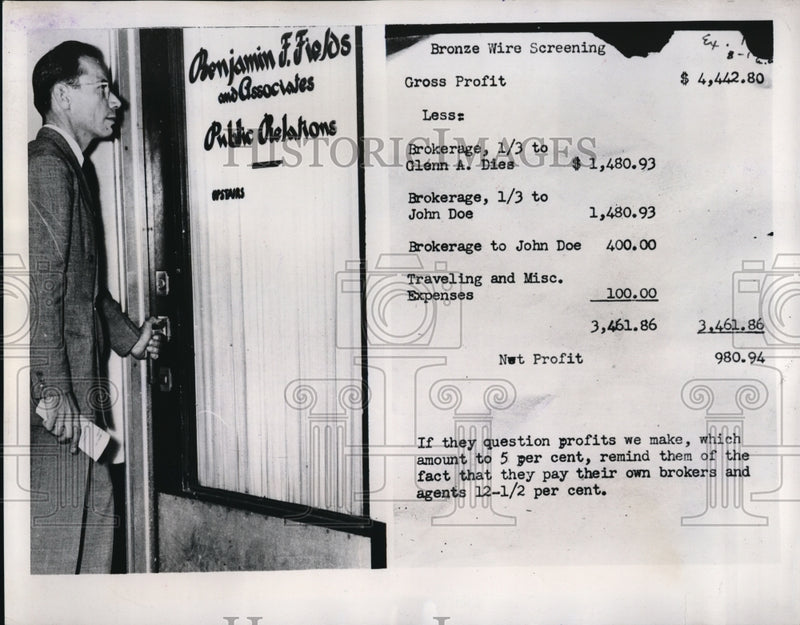 Benjamin F. Fields
and Associates
Public Relations
UPSTAIRS
HISTORIC IMAGES
Ex.
Bronze Wire Screening
Gross Profit $ 4,442.80
Less:
Brokerage, 1/3 to
Glenn A. Dies $ 1,480.93
Brokerage, 1/3 to
John Doe 1,480.93
Brokerage to John Doe 400.00
Traveling and Misc.
Expenses 100.00
3,461.86 3,461.86
Net Profit 980.94
If they question profits we make, which
amount to 5 per cent, remind them of the
fact that they pay their own brokers and
agents 12-1/2 per cent.